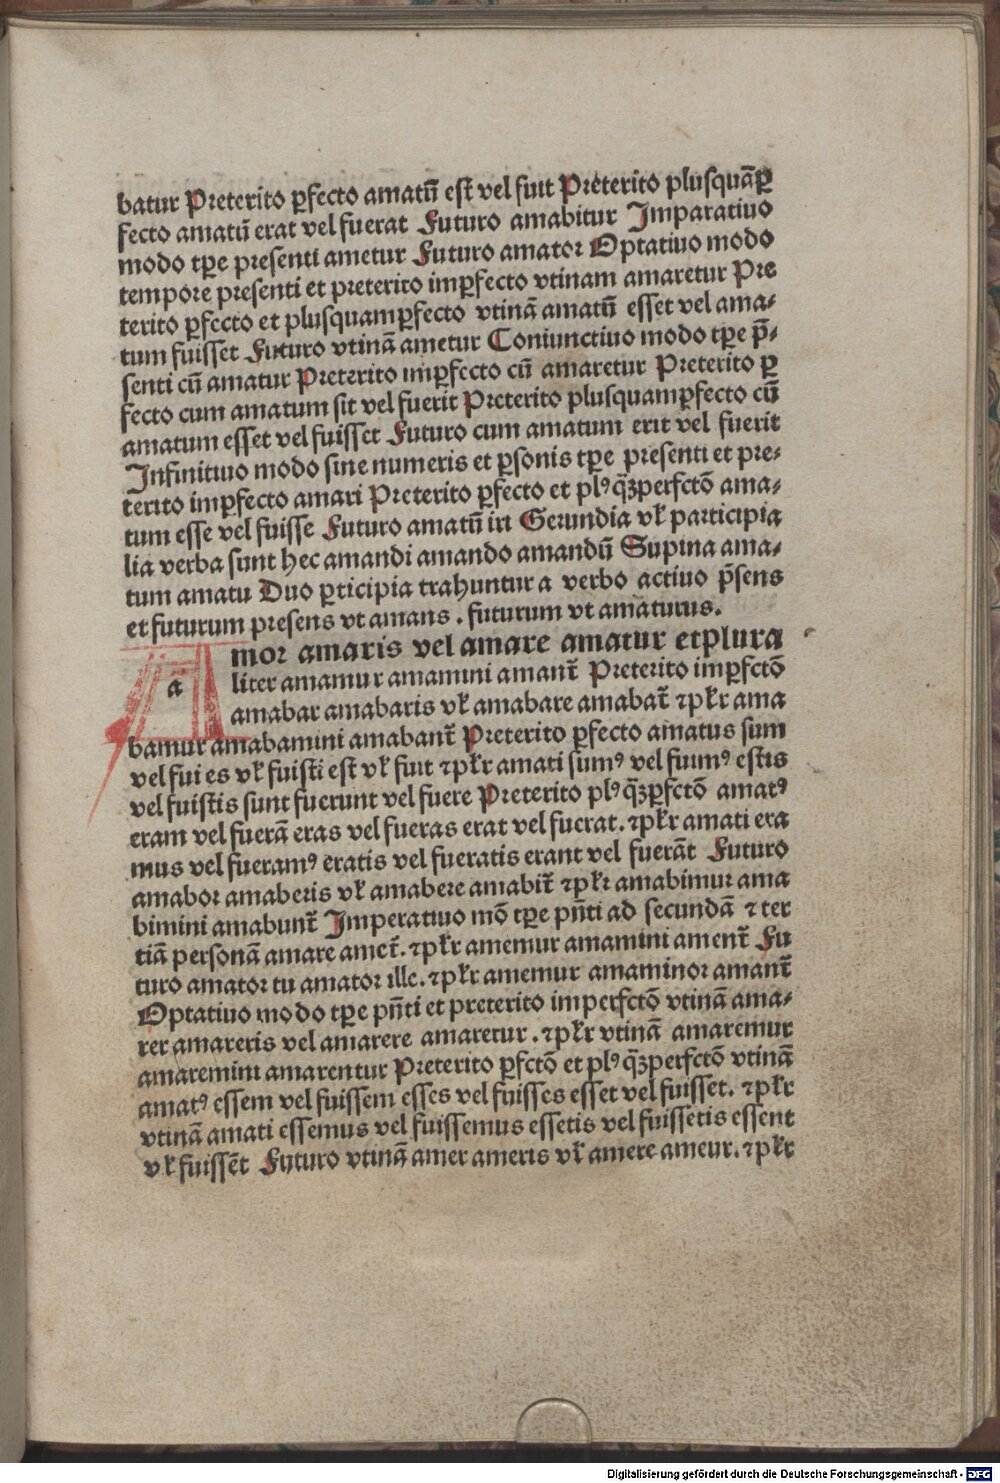 batur Preterito ꝑfecto amatū est vel fuit Preterito plusquāꝑ
fecto amatū erat vel fuerat Futuro amabitur Imparatiuo
modo tꝑe presenti ametur Futuro amator Optatiuo modo
tempore presenti et preterito imꝑfecto vtinam amaretur Pre
terito ꝑfecto et plusquamꝑfecto vtinā amatū esset vel ama⸗
tum fuisset Futuro vtinā ametur Coniunctiuo modo tꝑe p̄⸗
senti cū amatur Preterito imꝑfecto cū amaretur Preterito ꝑ
fecto cum amatum sit vel fuerit Preterito plusquamꝑfecto cū
amatum esset vel fuisset Futuro cum amatum erit vel fuerit
Infinitiuo modo sine numeris et ꝑsonis tꝑe presenti et pre⸗
terito imꝑfecto amari Preterito ꝑfecto et plꝰ q̄ꝫperfctō ama⸗
tum esse vel fuisse Futuro amatū iri Gerundia vꝉ participia
lia verba sunt hec amandi amando amandū Supina ama⸗
tum amatu Duo ꝑticipia trahuntur a verbo actiuo p̄sens
et futurum presens vt amans . futurum vt amaturus.
a
mor amaris vel amare amatur etplura
liter amamur amamini amant̄ Preterito imꝑfctō
amabar amabaris vꝉ amabare amabat̄ ⁊pꝉr ama
bamur amabamini amabant̄ Preterito ꝑfecto amatus sum
vel fui es vꝉ fuisti est vꝉ fuit ⁊pꝉr amati sumꝰ vel fuimꝰ estis
vel fuistis sunt fuerunt vel fuere Preterito plꝰ q̄ꝫꝑfctō amatꝰ
eram vel fuerā eras vel fueras erat vel fuerat. ⁊pꝉr amati era
mus vel fueramꝰ eratis vel fueratis erant vel fuerāt Futuro
amabor amaberis vꝉ amabere amabit̄ ⁊pꝉr amabimur ama
bimini amabunt̄ Imperatiuo mō tꝑe pn̄ti ad secundā ⁊ ter
tiā personā amare amet̄. ⁊pꝉr amemur amamini ament̄ Fu
turo amator tu amator ille. ⁊pꝉr amemur amaminor amant̄
Optatiuo modo tꝑe pn̄ti et preterito imperfctō vtinā ama⸗
rer amareris vel amarere amaretur . ⁊pꝉr vtinā amaremur
amaremini amarentur Preterito ꝑfctō et plꝰ q̄ꝫperfctō vtinā
amatꝰ essem vel fuissem esses vel fuisses esset vel fuisset. ⁊pꝉr
vtinā amati essemus vel fuissemus essetis vel fuissetis essent
vꝉ fuissēt Futuro vtinā amer ameris vꝉ amere ameur. ⁊pꝉr
Digitalisierung gefördert durch die Deutsche Forschungsgemeinschaft - DFG